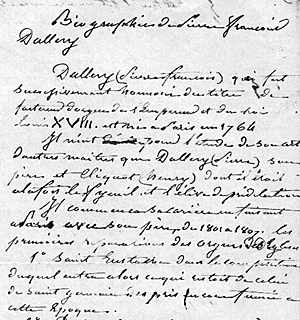 Biographie de Pierre François
Dallery
Dallery (Pierre-François) qui fut
successivement honoré du titre de
facteur d'orgues de l'Empereur et du Roi
Louis XVIII. est né à Paris en 1764
Il n'eut pour l'étude de son art
d'autres maîtres que Dallery (Pierre) son
père et Cliquot (henry) dont il était
à la fois le et l'élève de prédilection
Il commença sa carrière en faisant
à avec son père, de 1801 à 1807. les
premières réparations des orgues
1° Saint Eustache dans la composition
duquel entra alors ce qui restait de celui
de Saint germain des près
cette Epoque.